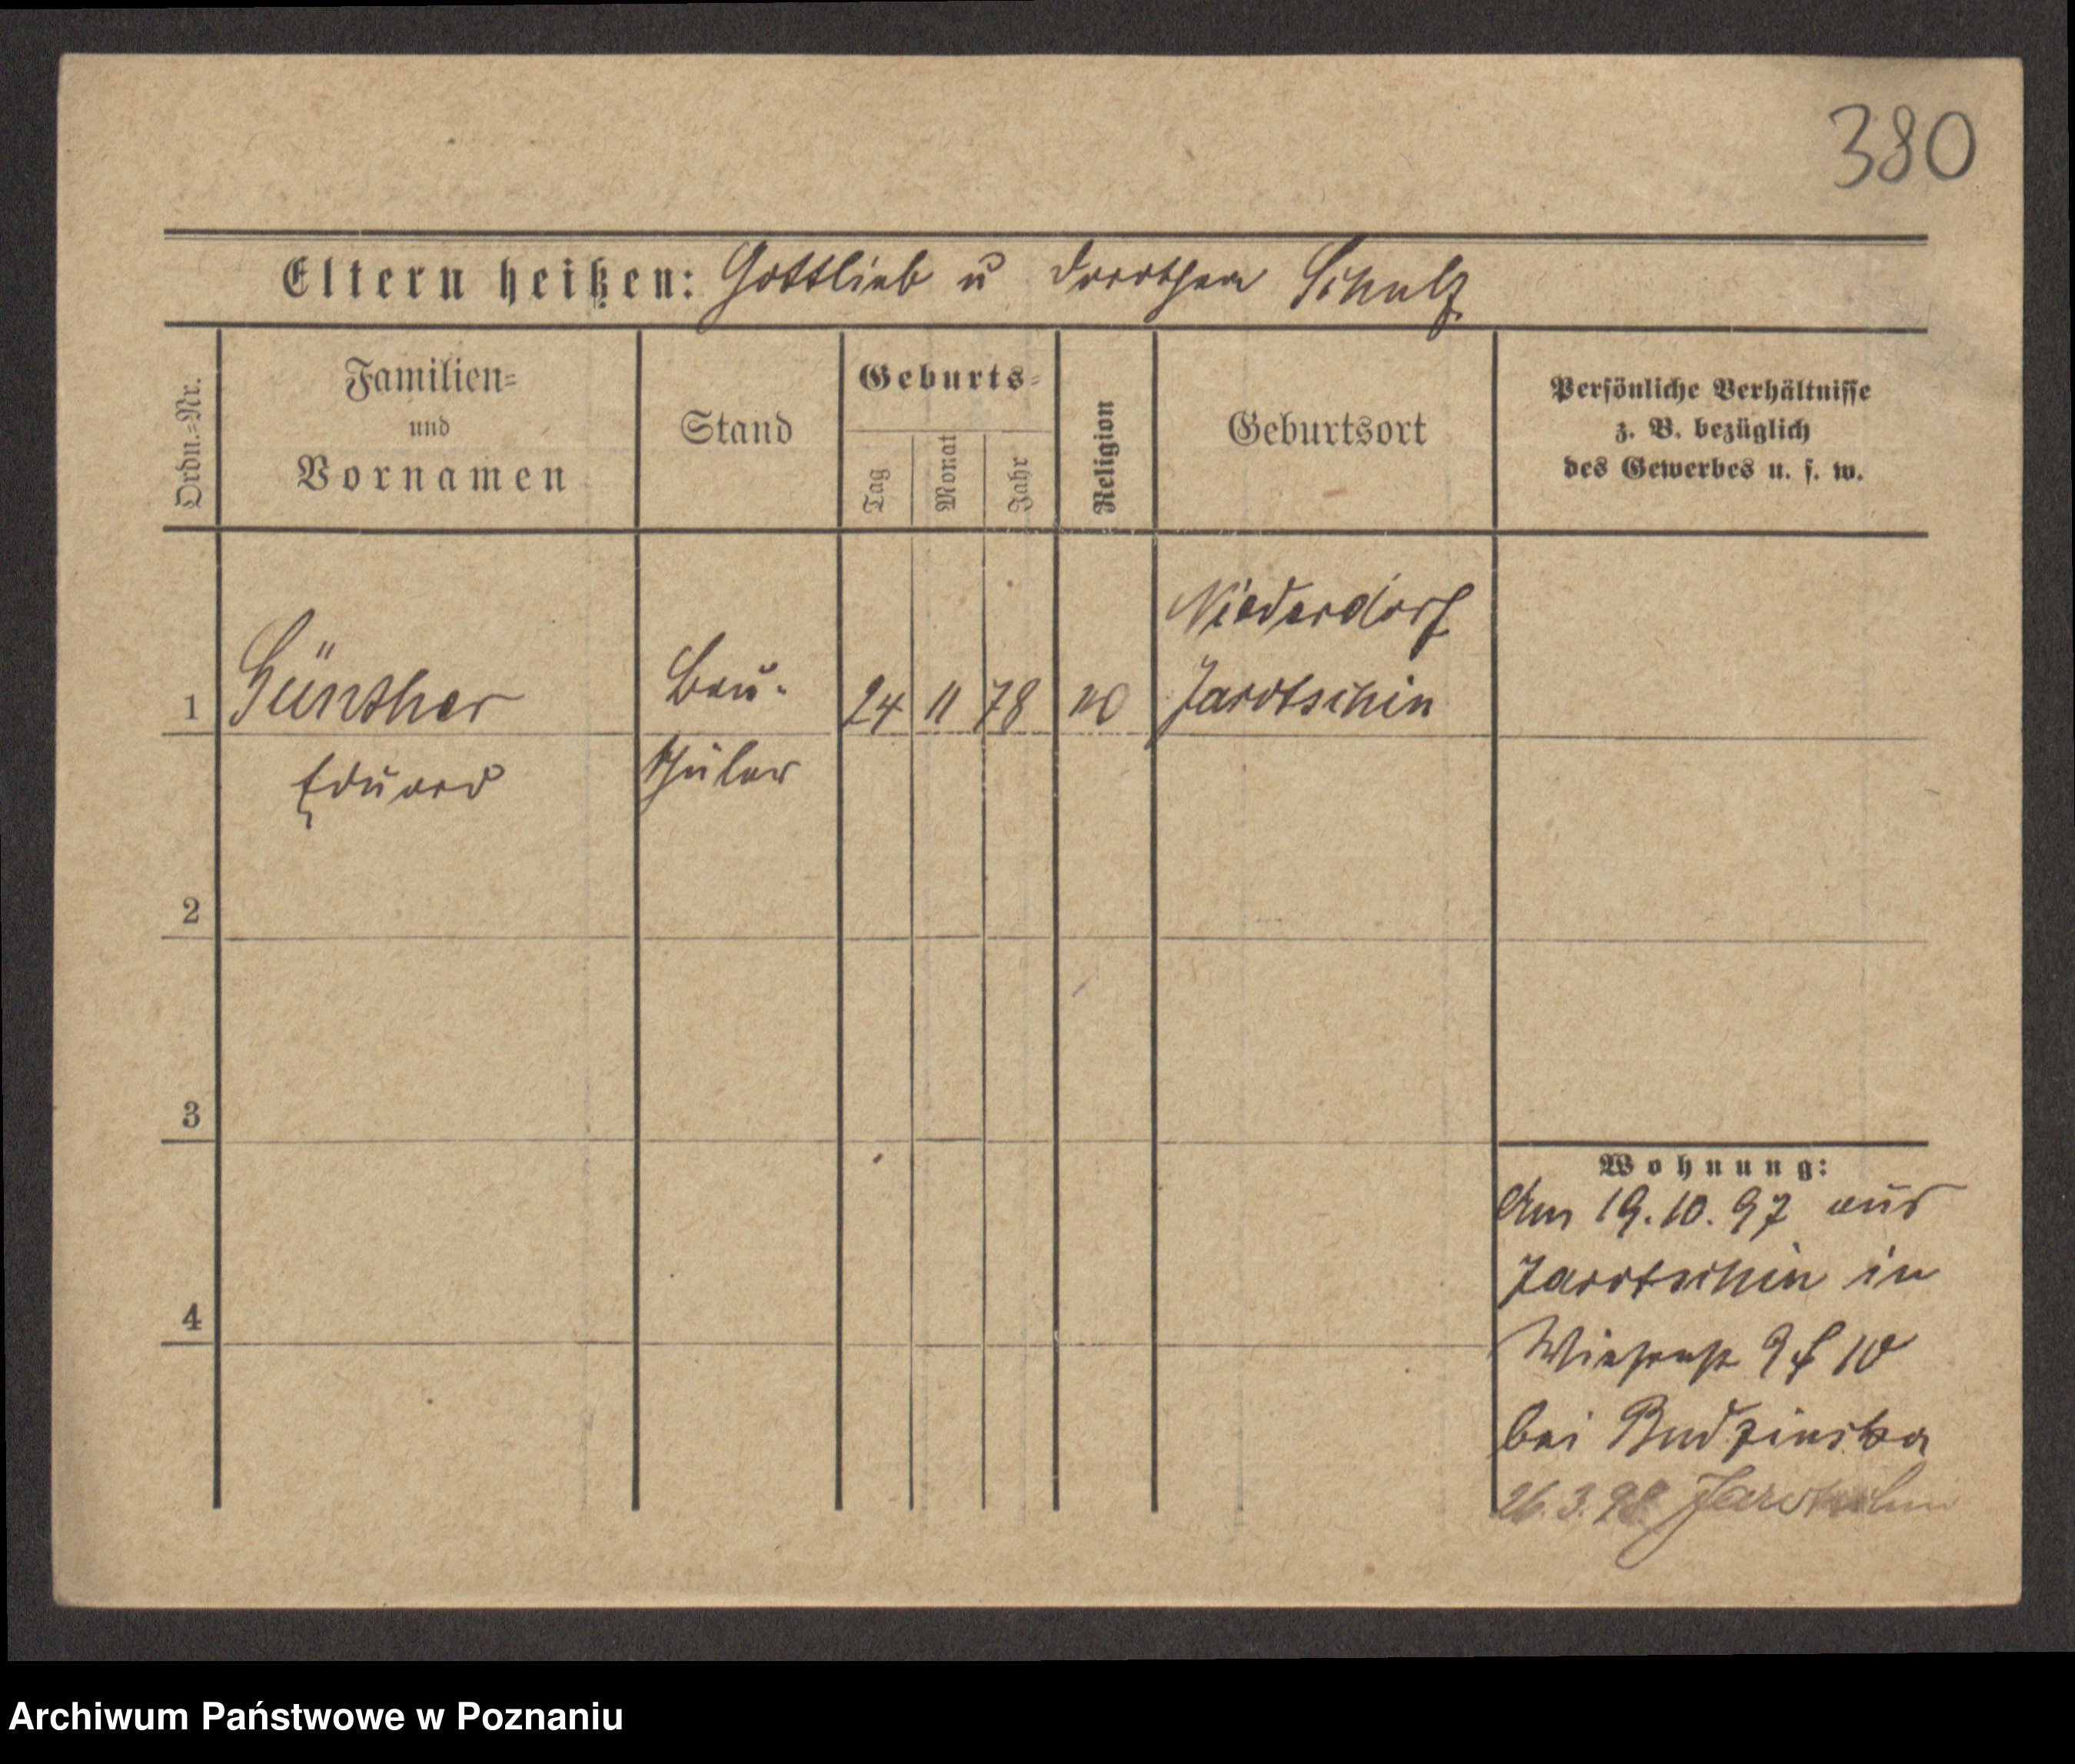 380
Eltern heißen: Gottlieb u Dorothea Schulz
Ordn.=Nr.
Familien=
und
Vornamen
Stand
Geburts=
Tag
Monat
Jahr
Religion
Geburtsort
Persönliche Verhältnisse
z. B. bezüglich
des Gewerbes u. s. w.
Niederdorf
1 Günther Bau- 24 11 78 Jarotschin
Eduard schüler
2
3
4
Wohnung:
Am 19.10.97 aus
Jarotschin in
Wiesenstr 9 10
bei Budzinska
26.3.98 Jarotschin
Archiwum Państwowe w Poznaniu